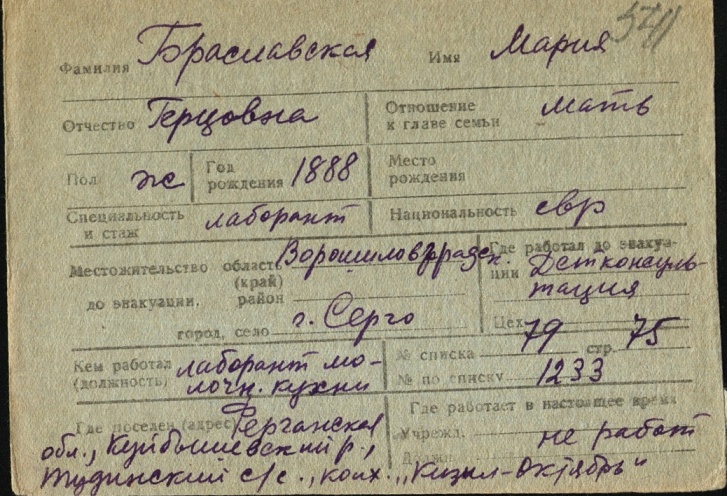 541
Фамилия Браславская Имя Мария
Отчество Герцовна Отношение к главе семьи мать
Пол ж Год рождения 1888 Место рождения
Специальность и стаж лаборант Национальность евр
Местожительство область (край) Ворошиловградск. Где работал до эвакуации Детконсультация
до эвакуации, район
город, село г. Серго Цех
№ списка 79 стр. 75
Кем работал (должность) лаборант молочн. кухни № по списку 1233
Где поселен (адрес) Ферганская Где работает в настоящее время
обл., Куйбышевский р., Учрежд. не работ
с/с., колх. „Кизил-Октябрь"